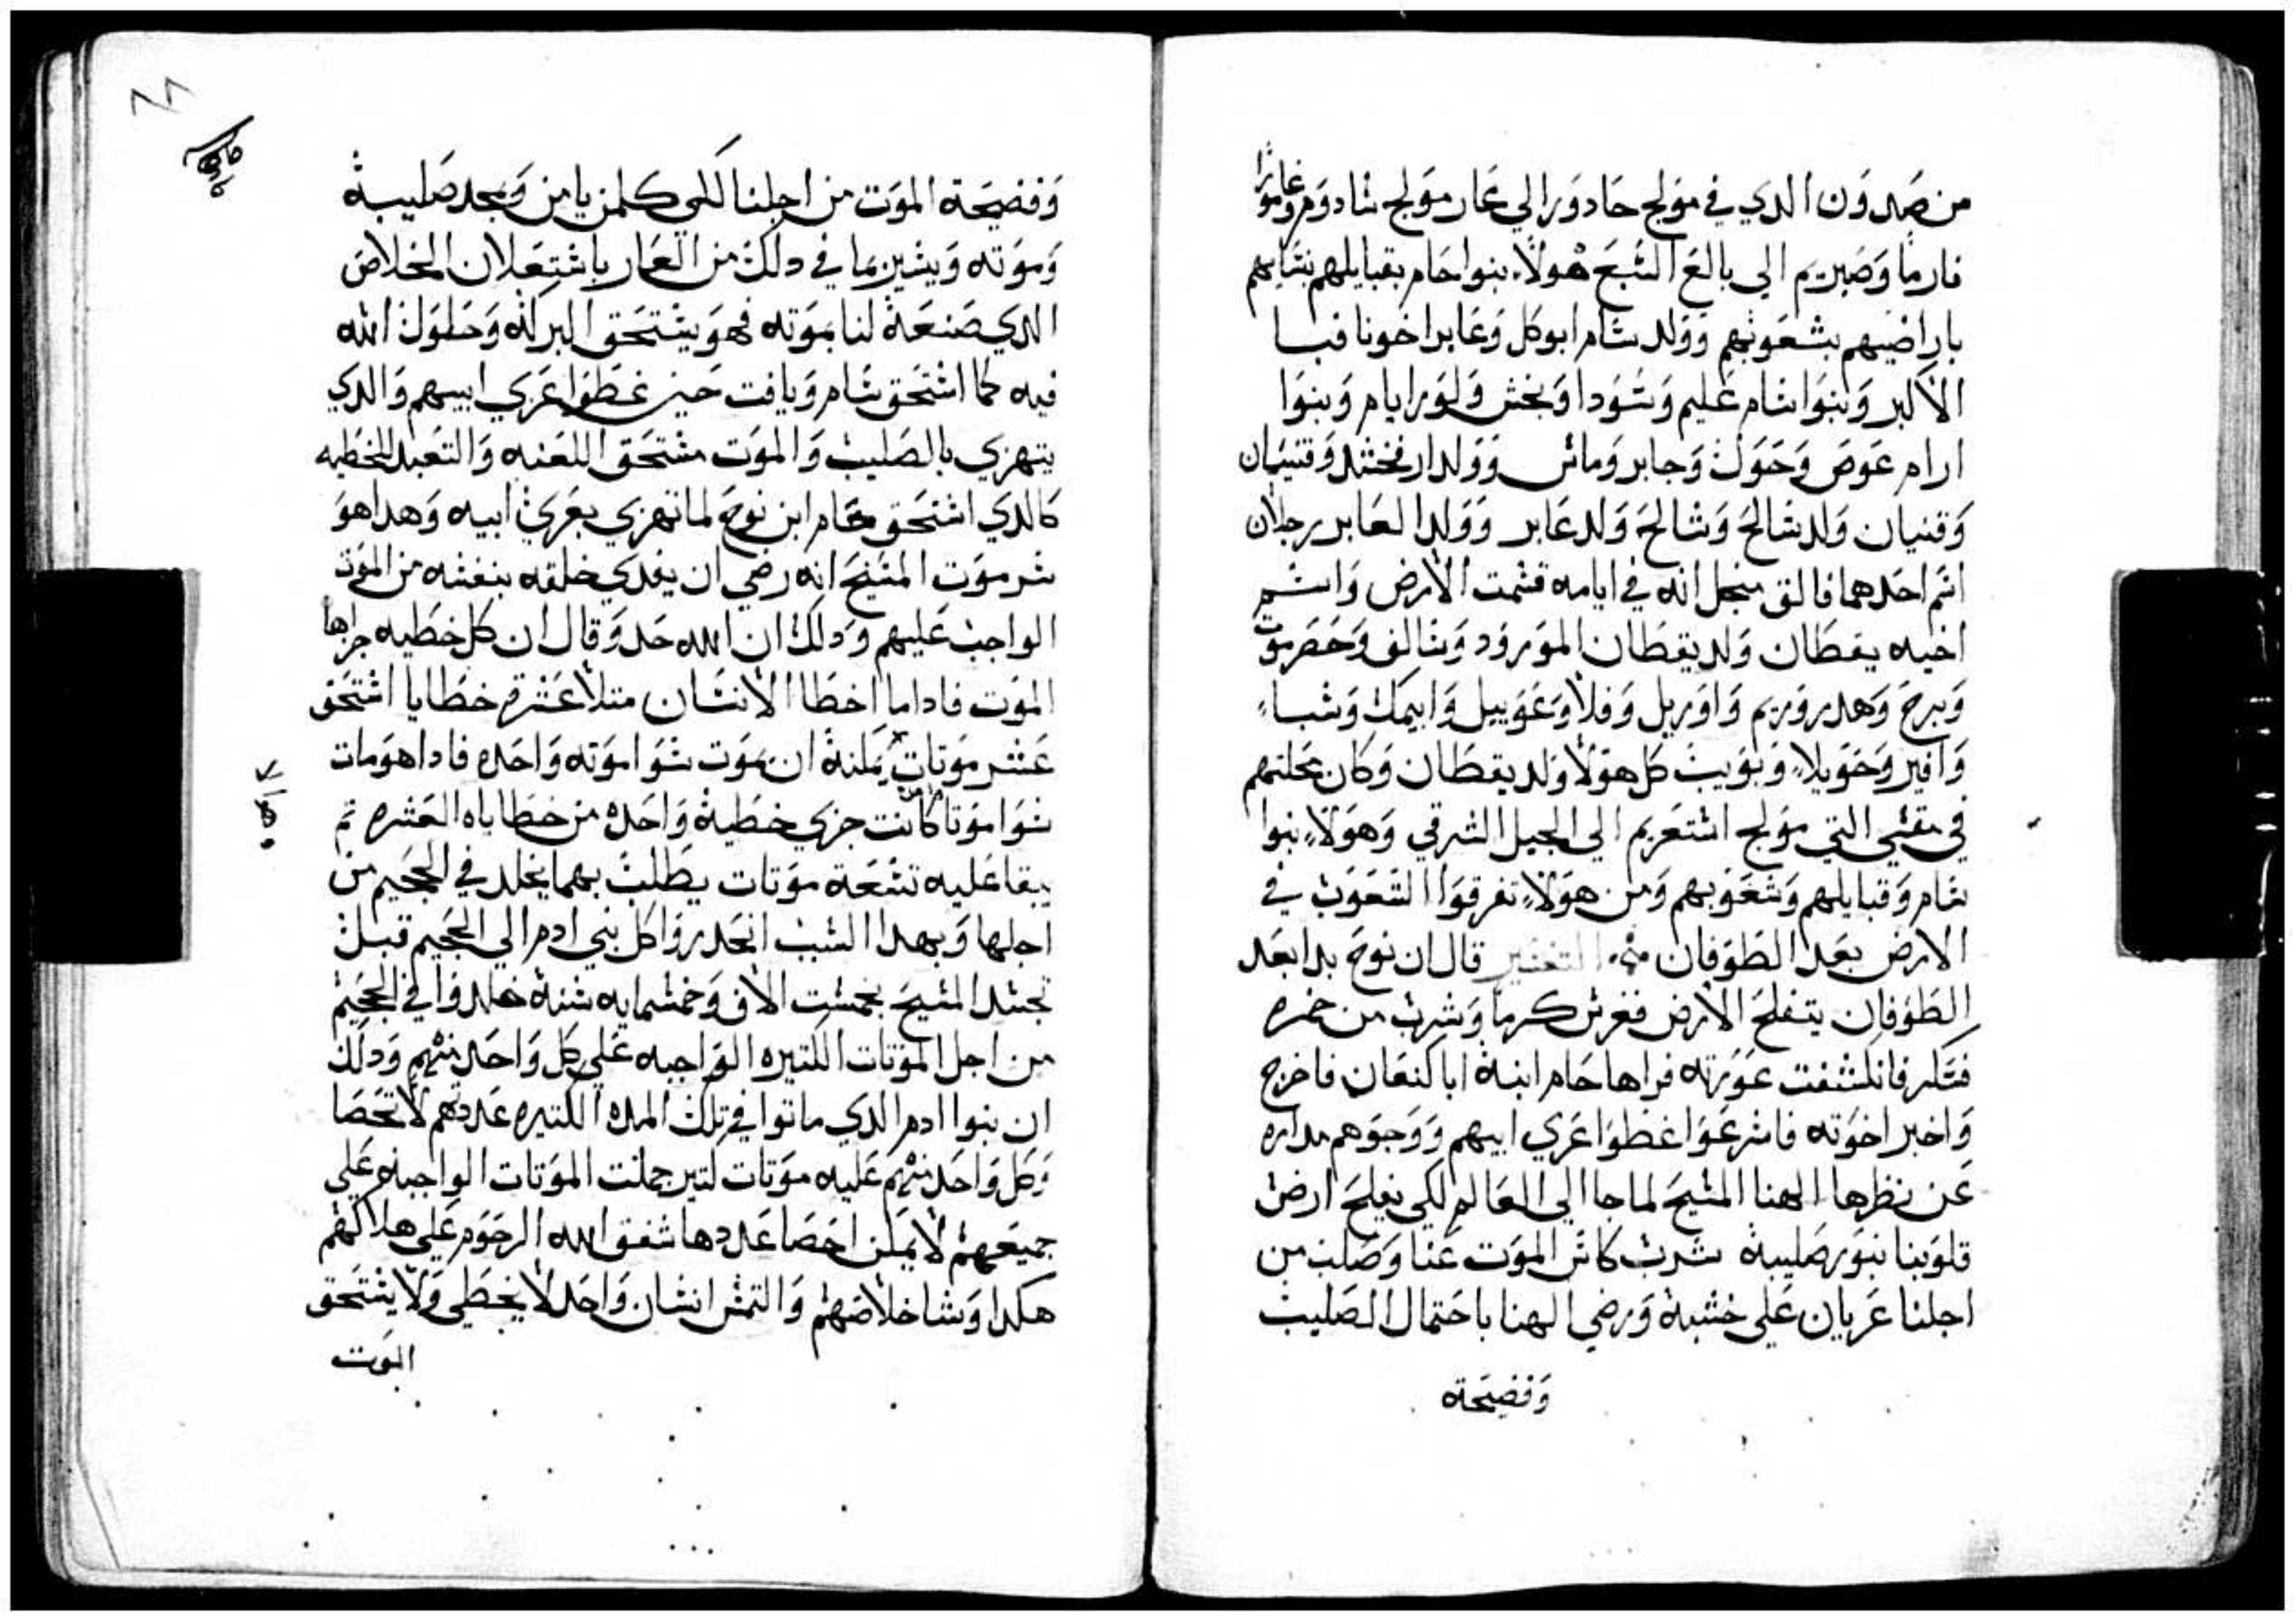 من صدون الدي في مولج حادورا الي عار مولج سادوم وعامورا
فارما وصبريم الي بالع السبع هولاء بنوا حام بقبايلهم بنسايهم
باراضيهم بشعوبهم وولد سام ابو كل وعابر اخونا فبا
الاكبر وبنوا سام عليم وسودا وبخش ولورا يام وبنوا
ارام عوص وحول وجابر وماش وولد ارفخشد وقنيان
وقنيان ولد شالح وشالح ولد عابر وولد العابر رجلان
اسم احدهما فالق منجل انه في ايامه قسمت الارض واسم
اخيه يقطان ولد يقطان المورود وسالف وحضرموت
وبرح وهدروريم واوريل وفلا وعوبيل وابيمك وشباء
وافير وحويلا ويوبيب كل هولا ولد يقطان وكان محلتهم
في مقسي التي مولج اشتعريم الي الجبل الشرقي وهولاء بنوا
سام وقبايلهم وشعوبهم ومن هولاء تفرقوا الشعوب في
الارض بعد الطوفان التفسير قال ان نوح بدا بعد
الطوفان يتفلح الارض فغرس كرما وشرب من خمره
فسكر فانكشفت عورته فراها حام ابنه ابا كنعان فاخرج
واخبر اخوته فاسرعوا غطوا عري ابيهم ووجوهم مداره
عن نظرها الهنا المسيح لما جا الي العالم لكي يفلح ارض
قلوبنا بنور صليبه شرب كاس الموت عنا وصلب من
اجلنا عريان علي خشبة ورضي الهنا باحتمال الصليب
وفضيحة
وفضيحة الموت من اجلنا لكي كلمن يامن ويمجد صليبة
وموته ويشير بما في دلك من العار باستعلان الخلاص
الدي صنعة لنا بموته فهو يستحق البركة وحلول الله
فيه كما استحق سام ويافت حين غطوا عري ابيهم والدي
يتهزي بالصليب والموت مستحق اللعنه والتعبد للخطيه
كالدي استحق حام ابن نوح لما تهزي بعري ابيه وهدا هو
سر موت المسيح انه رضي ان يفدي خلقه بنفسه من الموت
الواجب عليهم ودلك ان الله حد وقال ان كل خطيه جزاها
الموت فادا ما اخطا الانسان متلا عشرة خطايا استحق
عشر موتات يمكنة ان يموت سوا موته واحده فادا هو مات
سوا موتا كانت جزي خطية واحده من خطاياه العشره تم
يبقا عليه تسعة موتات يطلب بهما يخلد في الجحيم من
اجلها وبهدا السبب انحدروا كل بني ادم الي الجحيم قبل
تجسد المسيح بخمست الاف وخمسمايه سنة خلدوا في الجحيم
من اجل الموتات الكتيره الواجبه علي كل واحد منهم ودلك
ان بنوا ادم الدي ماتوا في تلك المده الكتيره عددهم لا تحصا
وكل واحد منهم عليه موتات كتير جملت الموتات الواجبه علي
جميعهم لا يمكن احصا عددها شفق الله الرحوم علي هلاكهم
هكدا وشا خلاصهم والتمس انسان واحد لا يخطي ولا يستحق
الموت